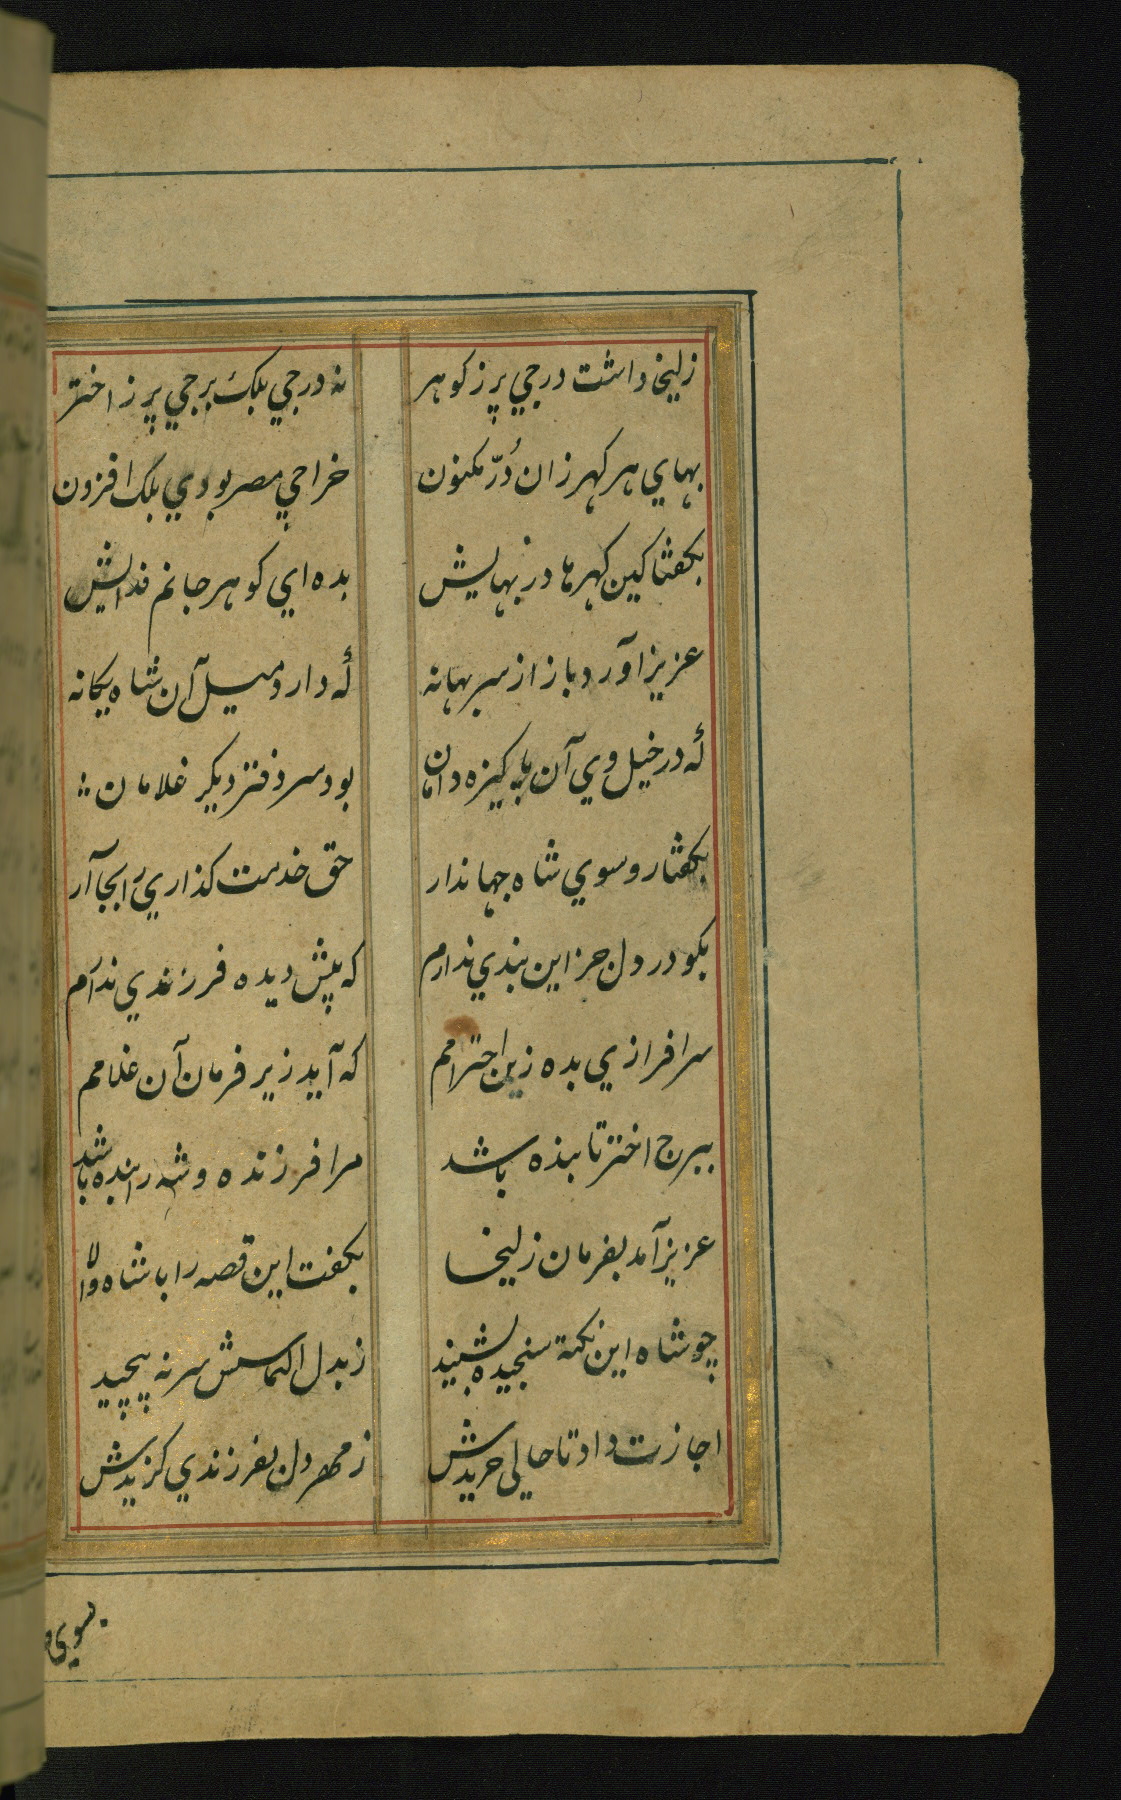 زلیخا داشت درجي پر ز کوهر نه درجي بلکه برجي پر ز اختر
بهاي هر کهر زان دُرّ مکنون خراجي مصر بودي بلک افزون
بکفتا کین کهرها در بهایش بده اي کوهر جانم فدایش
عزیز آورد باز از سر بهانه که دارد میل آن شاه یکانه
که در خیل وي آن پاکیزه دامان بود سر دفتر دیکر غلامان
بکفتا رو سوي شاه جهاندار حق خدمت کذاري را بجا آر
بکو در دل جز این بندي ندارم که پیش دیده فرزندي ندارم
سرافرازي بده زین احترامم که آید زیر فرمان آن غلامم
ببرج اختر تابنده باشد مرا فرزند و شه را بنده باشد
عزیز آمد بفرمان زلیخا بکفت این قصه را با شاه والا
چو شاه این نکتهٔ سنجیده بشنید ز بدل التماسش سر نه پیچید
اجازت داد تا حالي خریدش ز مهر دل بفرزندي کزیدش
بسوي